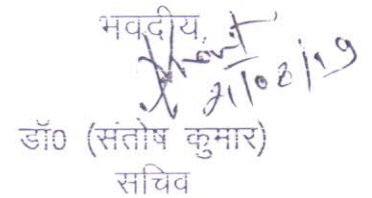 भवदीय,
21/02/19
डॉ0 (संतोष कुमार)
सचिव